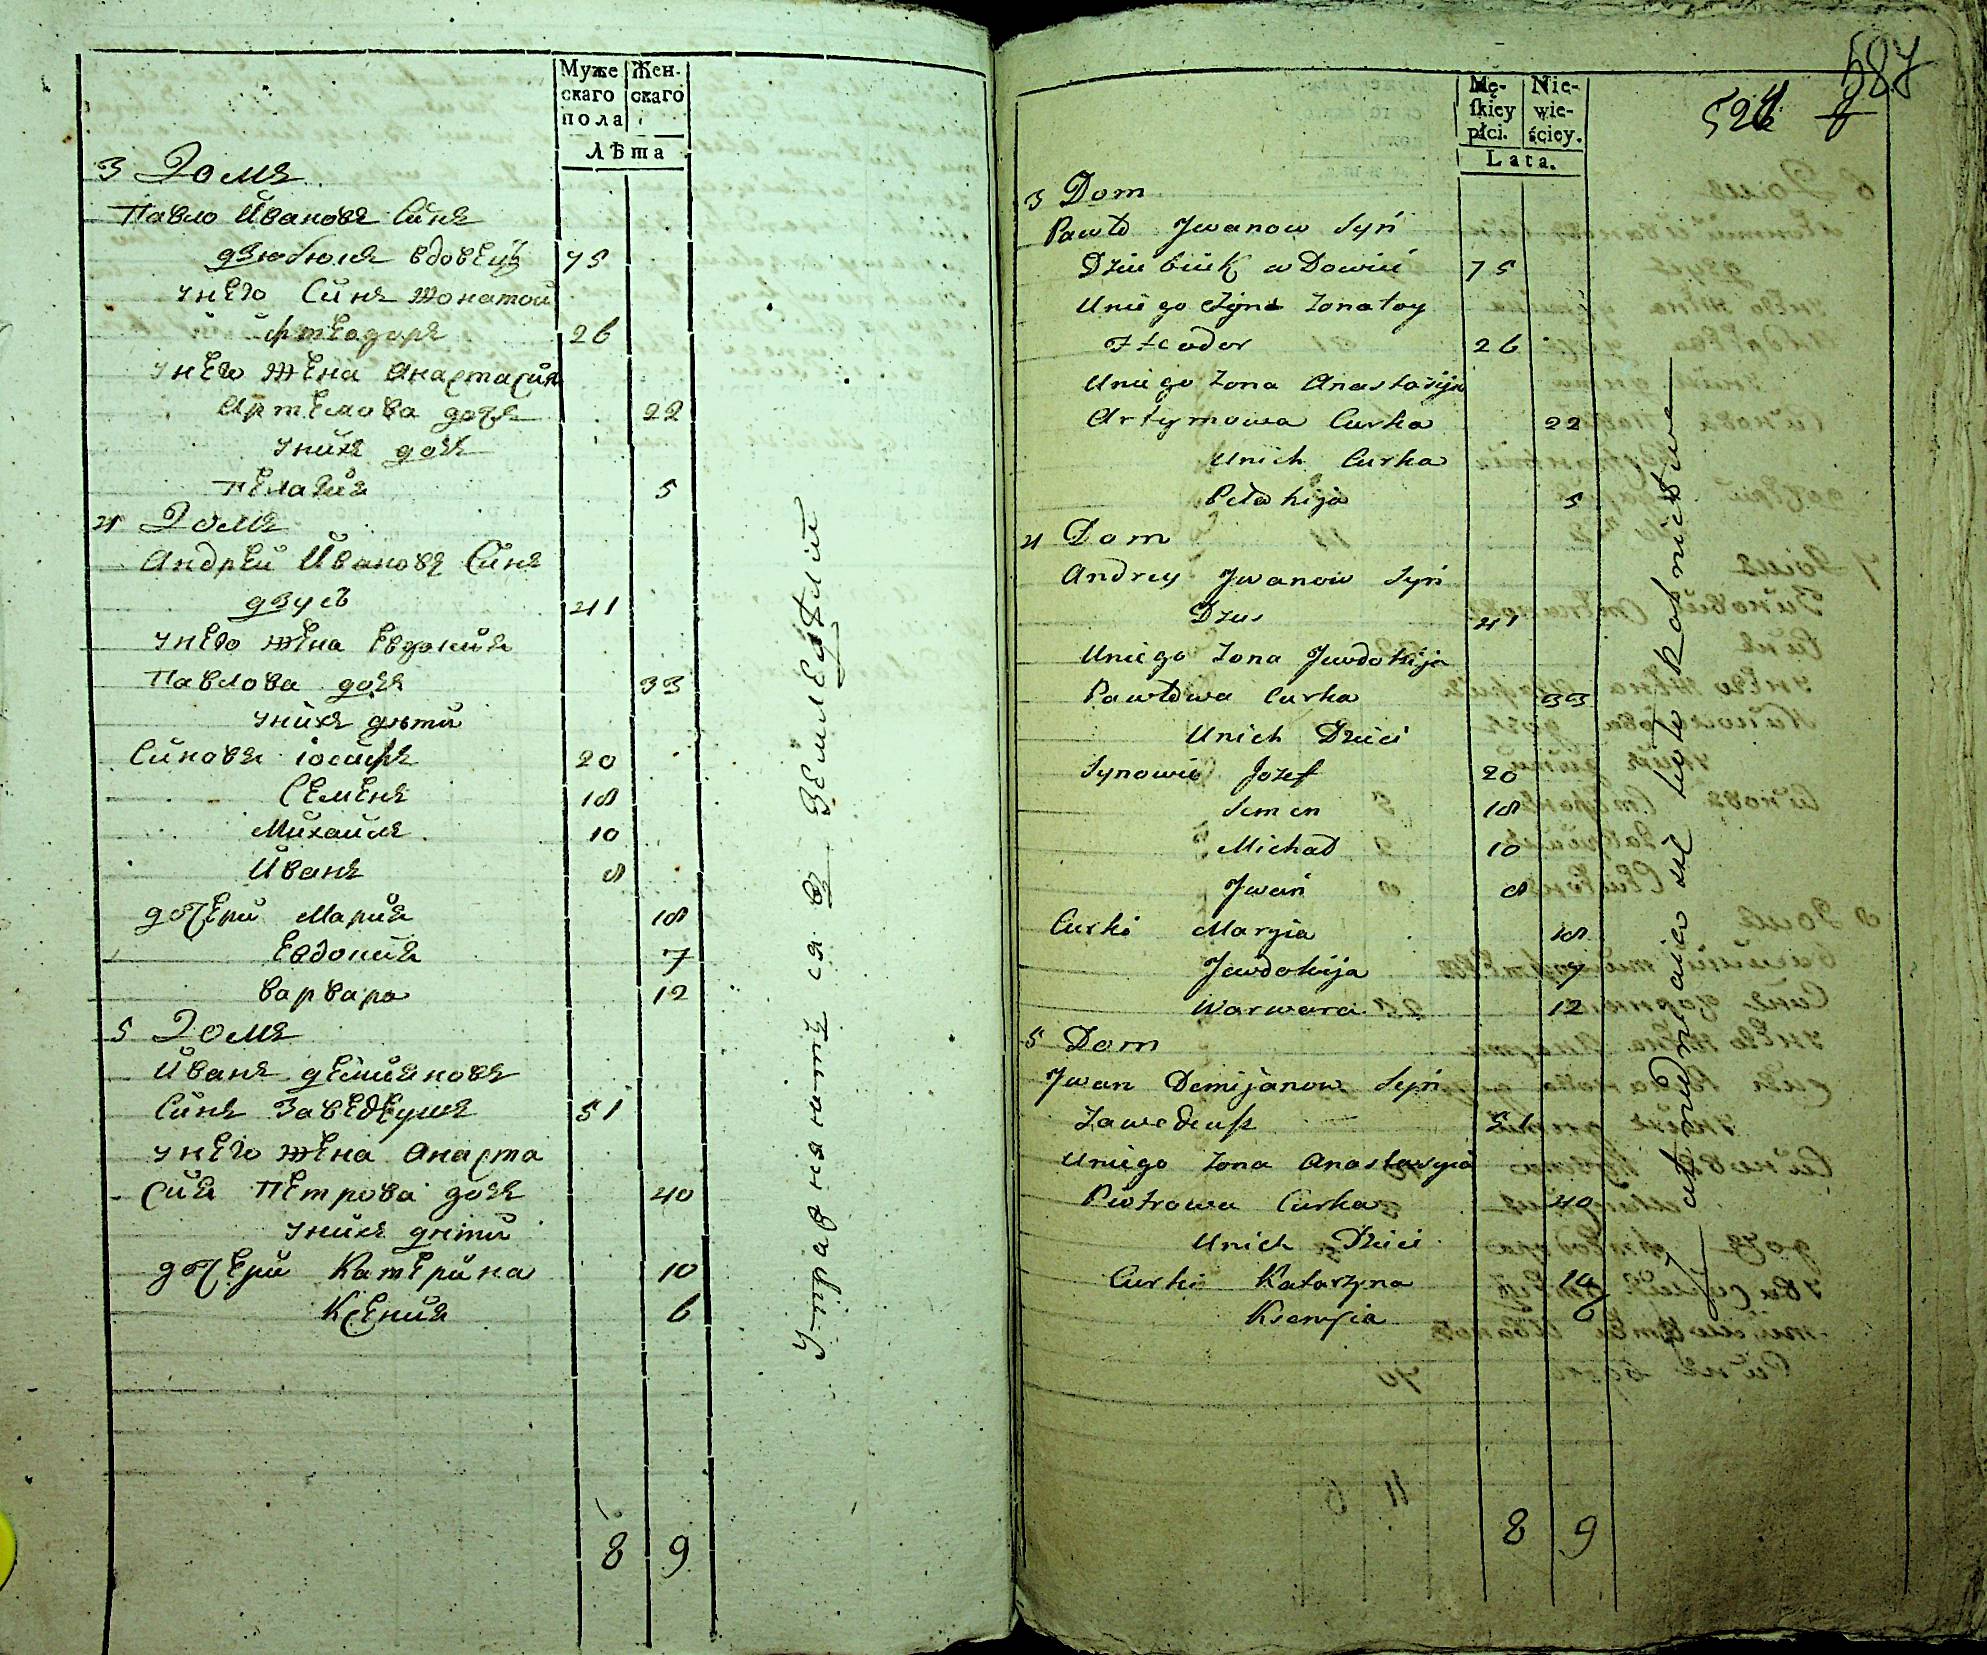 Муже
скаго
пола
Жен-
скаго
Лѣта
3 Домъ
Павло Ивановъ Синъ
дзюбюкъ вдовецъ 75
унего Синъ Жонатой
Фтеодоръ 26
унего жена Анастасия
Артемова дочъ 22
унихъ дочъ
Пелагия 5
4 Домъ
Андрей Ивановъ Синъ
дзусъ 41
унего жена Евдокия
Павлова дочъ 33
унихъ дѣти
Синовя Iосифъ 20
Семенъ 18
Михайлъ 10
Иванъ 8
дочери Мария 18
Евдокия 7
Варвара 12
5 Домъ
Иванъ демияновъ
Синъ Заведеушъ 51
унего жена Анаста
сия Петрова дочъ 40
унихъ дѣти
дочери Катерина 10
Ксения 6
8 9
Упражняютъ ся въ Земледѣлии
587
Mę-
ſkiey
płci.
Nie-
wie-
ściey.
Lata.
3 Dom
Pawło Jwanow Syń
Dziubiuk wDowiec 75
Uniego Syna Zonatoy
Fteodor 26
Uniego Zona Anastasija
Artymowa Curka 22
Unich Curka
Pełahija 5
4 Dom
Andrey Jwanow Syń
Dzus 41
Uniego Zona Jewdokija
Pawłowa Curka 33
Unich Dzieci
Synowie Jozef 20
Semen 18
Michał 10
Jwań 8
Curki Maryia 18
Jewdokija 7
Warwara 12
5 Dom
Jwan Demijanow Syń
Zawedeuſz 51
Uniego Zona Anastasyia
Piotrowa Curka 40
Unich Dzieci
Curki Katarzyna 10
Ksenyia 6
8 9